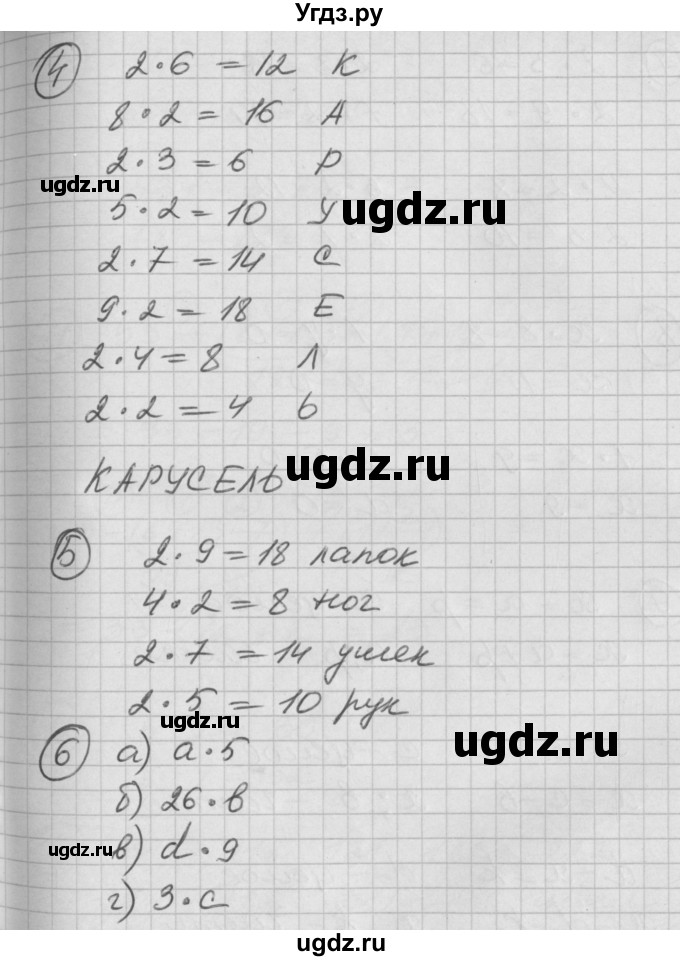 Угдз.ру
4 2·6 = 12 К
8·2 = 16 А
2·3 = 6 Р
ugdz.ru
5·2 = 10 У
ugdz.ru
2·7 = 14 С
9·2 = 18 Е
2·4 = 8 Л
2·2 = 4 Ь
КАРУСЕЛЬ
ugdz.ru
5 2·9 = 18 лапок
4·2 = 8 ног
2·7 = 14 ушек
2·5 = 10 рук
ugdz.ru
6 а) a·5
ugdz.ru
б) 26·в
ugdz.ru
в) d·9
г) 3·c
ugdz.ru